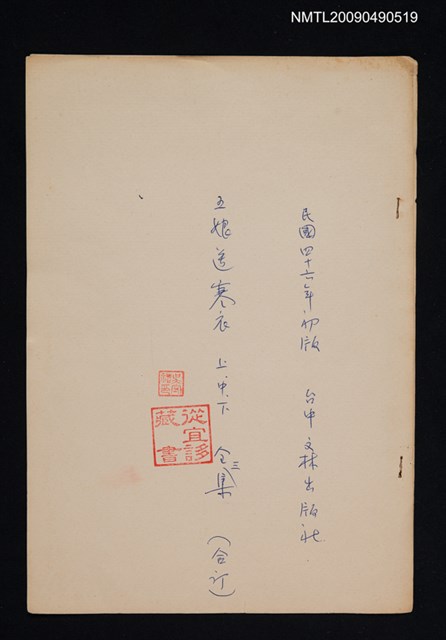 NMTL20090490519
民國四十六年初版 台中文林出版社.
五娘送寒衣 上.中.下 全三集 (合訂)
從宜誃
藏書